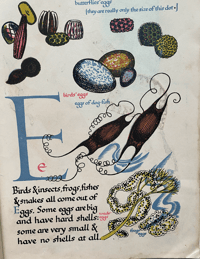 butterflies eggs
(they are really only the size of this dot •)
birds' eggs
eggs of dog fish
E
e
Birds & insects, frogs, fishes
& snakes all come out of
Eggs. Some eggs are big
and have hard shells:
some are very small &
have no shells at all